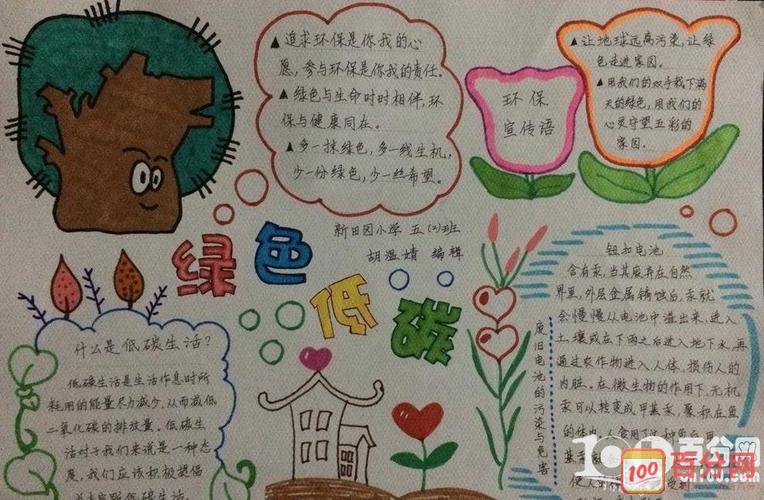 ▲追求环保是你我的心
愿,参与环保是你我的责任。
▲绿色与生命时时相伴,环
保与健康同在。
▲多一抹绿色,多一线生机,
少一份绿色,少一丝希望。
环保
宣传语
▲让地球远离污染,让绿
色走进家园。
▲用我们的双手栽下满
天的绿色,用我们的
心灵守望五彩的
家园。
新田园小学 五(2)班
胡温婧 编辑
绿色
低碳
什么是低碳生活?
低碳生活是生活作息时所
耗用的能量尽力减少,从而减低
二氧化碳的排放量。低碳生
活对于我们来说是一种态
度,我们应该积极提倡
低碳生活
废旧电池的污染与危害
钮扣电池
含有汞,当其废弃在自然
界里,外层金属锈蚀后,汞就
会慢慢从电池中溢出来,进入
土壤或在下雨之后进入地下水,再
通过农作物进入人体,损伤人的
内脏。在微生物的作用下,无机
汞可以转变成甲基汞,聚积在鱼
的体内,人食用了这种鱼
100
百分网